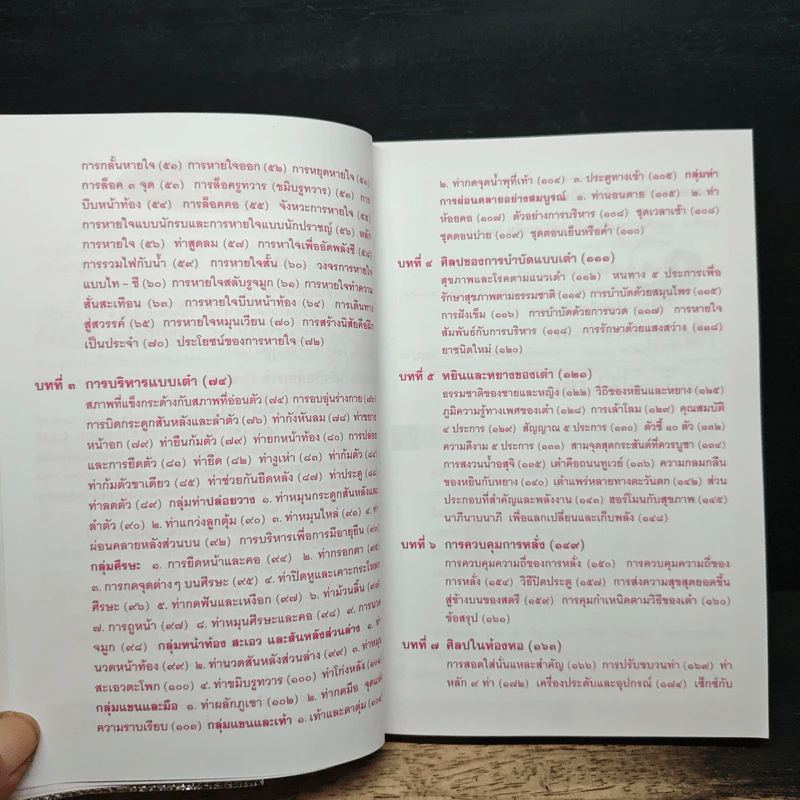 การกลั้นหายใจ (๕๑) การหายใจออก (๕๒) การหยุดหายใจ (๕๑)
การล็อค ๓ จุด (๕๓) การล็อครูทวาร (ขมิบรูทวาร) (๕๑) การ
บีบหน้าท้อง (๕๔) การล็อคคอ (๕๔) จังหวะการหายใจ (๕๕)
การหายใจแบบนักรบและการหายใจแบบนักปราชญ์ (๕๖) หลัก
การหายใจ (๕๖) ท่าสูดลม (๕๗) การหาใจเพื่ออัดพลังชี่ (๕๘)
การรวมไฟกับน้ำ (๕๙) การหายใจสั้น (๖๐) วงจรการหายใจ
แบบไท - ชี (๖๐) การหายใจสลับรูจมูก (๖๑) การหายใจทำความ
สั่นสะเทือน (๖๓) การหายใจบีบหน้าท้อง (๖๔) การเดินทาง
สู่สวรรค์ (๖๕) การหายใจหมุนเวียน (๗๐) การสร้างนิสัยคือฝึก
เป็นประจำ (๗๐) ประโยชน์ของการหายใจ (๗๒)
บทที่ ๓ การบริหารแบบเต๋า (๗๔)
สภาพที่แข็งกระด้างกับสภาพที่อ่อนตัว (๗๔) การอบอุ่นร่างกาย (๗๖)
การบิดกระดูกสันหลังและลำตัว (๗๖) ท่ากังหันลม (๗๘) ท่าขยาย
หน้าอก (๗๙) ท่ายืนก้มตัว (๗๙) ท่ายกหน้าท้อง (๘๐) การปล่อย
และการยึดตัว (๘๑) ท่ายึด (๘๒) ท่างูเห่า (๘๓) ท่าก้มตัว (๘๔)
ท่าก้มตัวขาเดียว (๘๕) ท่าช่วยกันยึดหลัง (๘๗) ท่าประตู (๘๘)
ท่าลดตัว (๘๙) กลุ่มท่าปล่อยวาง ๑. ท่าหมุนกระดูกสันหลังและ
ลำตัว (๙๐) ๒. ท่าแกว่งลูกตุ้ม (๙๐) ๓. ท่าหมุนไหล่ (๙๑) ๔. ท่า
ผ่อนคลายหลังส่วนบน (๙๒) การบริหารเพื่อการมีอายุยืน (๙๓)
กลุ่มศีรษะ ๑. การยึดหน้าและคอ (๙๔) ๒. ท่ากรอกตา (๙๕)
๓. การกดจุดต่างๆ บนศีรษะ (๙๕) ๔. ท่าปิดหูและเคาะกระโหลก
ศีรษะ (๙๖) ๕. ท่ากดฟันและเหงือก (๙๗) ๖. ท่าม้วนลิ้น (๙๗)
๗. การถูหน้า (๙๗) ๘. ท่าหมุนศีรษะและคอ (๙๘) ๙. การนวด
จมูก (๙๘) กลุ่มหน้าท้อง สะเอว และสันหลังส่วนล่าง ๑. ท่า
นวดหน้าท้อง (๙๙) ๒. ท่านวดสันหลังส่วนล่าง (๙๙) ๓. ท่าหมุน
สะเอวตะโพก (๑๐๐) ๔. ท่าขมิบรูทวาร (๑๐๐) ท่าโก่งหลัง (๑๐๑)
กลุ่มแขนและมือ ๑. ท่าผลักภูเขา (๑๐๒) ๒. ท่ากดมือ จุดแห่ง
ความราบเรียบ (๑๐๓) กลุ่มแขนและเท้า ๑. เท้าและตาตุ่ม (๑๐๔)
๒. ท่ากดจุดน้ำพุที่เท้า (๑๐๔) ๓. ประตูทางเข้า (๑๐๕) กลุ่มท่า
การผ่อนคลายอย่างสมบูรณ์ ๑. ท่านอนตาย (๑๐๕) ๒. ท่า
ห้อยคอ (๑๐๗) ตัวอย่างการบริหาร (๑๐๘) ชุดเวลาเช้า (๑๐๘)
ชุดตอนบ่าย (๑๐๙) ชุดตอนเย็นหรือค่ำ (๑๑๐)
บทที่ ๔ ศิลปของการบำบัดแบบเต๋า (๑๑๑)
สุขภาพและโรคตามแนวเต๋า (๑๑๒) หนทาง ๕ ประการเพื่อ
รักษาสุขภาพตามธรรมชาติ (๑๑๔) การบำบัดด้วยสมุนไพร (๑๑๕)
การฝังเข็ม (๑๑๖) การบำบัดด้วยการนวด (๑๑๗) การหายใจ
สัมพันธ์กับการบริหาร (๑๑๘) การรักษาด้วยแสงสว่าง (๑๑๘)
ยาชนิดใหม่ (๑๒๐)
บทที่ ๕ หยินและหยางของเต๋า (๑๒๑)
ธรรมชาติของชายและหญิง (๑๒๒) วิถีของหยินและหยาง (๑๒๕)
ภูมิความรู้ทางเพศของเต๋า (๑๒๘) การเล้าโลม (๑๒๙) คุณสมบัติ
๔ ประการ (๑๒๙) สัญญาณ ๕ ประการ (๑๓๐) ตัวชี้ ๑๐ ตัว (๑๓๒)
ความดีงาม ๕ ประการ (๑๓๓) สามจุดสุดกระสันต์ที่ควรบูชา (๑๓๔)
การสงวนน้ำอสุจิ (๑๓๕) เต๋าคือถนนทูเวย์ (๑๓๖) ความกลมกลืน
ของหยินกับหยาง (๑๔๐) เต๋าแพร่หลายทางตะวันตก (๑๔๒) ส่วน
ประกอบที่สำคัญและพลังงาน (๑๔๓) ฮอร์โมนกับสุขภาพ (๑๔๕)
นาภีนาบนาภี เพื่อแลกเปลี่ยนและเก็บพลัง (๑๔๘)
บทที่ ๖ การควบคุมการหลั่ง (๑๔๙)
การควบคุมความถี่ของการหลั่ง (๑๕๐) การควบคุมความถี่ของ
การหลั่ง (๑๕๔) วิธีปิดประตู (๑๕๗) การส่งความสุขสุดยอดขึ้น
สู่ข้างบนของสตรี (๑๕๙) การคุมกำเหนิดตามวิธีของเต๋า (๑๖๐)
ข้อสรุป (๑๖๑)
บทที่ ๗ ศิลปในห้องหอ (๑๖๓)
การสอดใส่นั่นแหละสำคัญ (๑๖๖) การปรับขบวนท่า (๑๖๙) ท่า
หลัก ๙ ท่า (๑๗๒) เครื่องประดับและอุปกรณ์ (๑๗๔) เซ็กซ์กับ